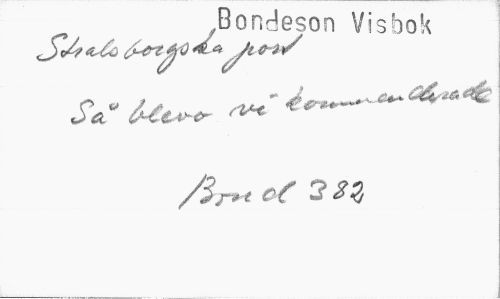 Bondeson Visbok
Stralsborgska port
Så blevo vi kommenderade
Bond 382